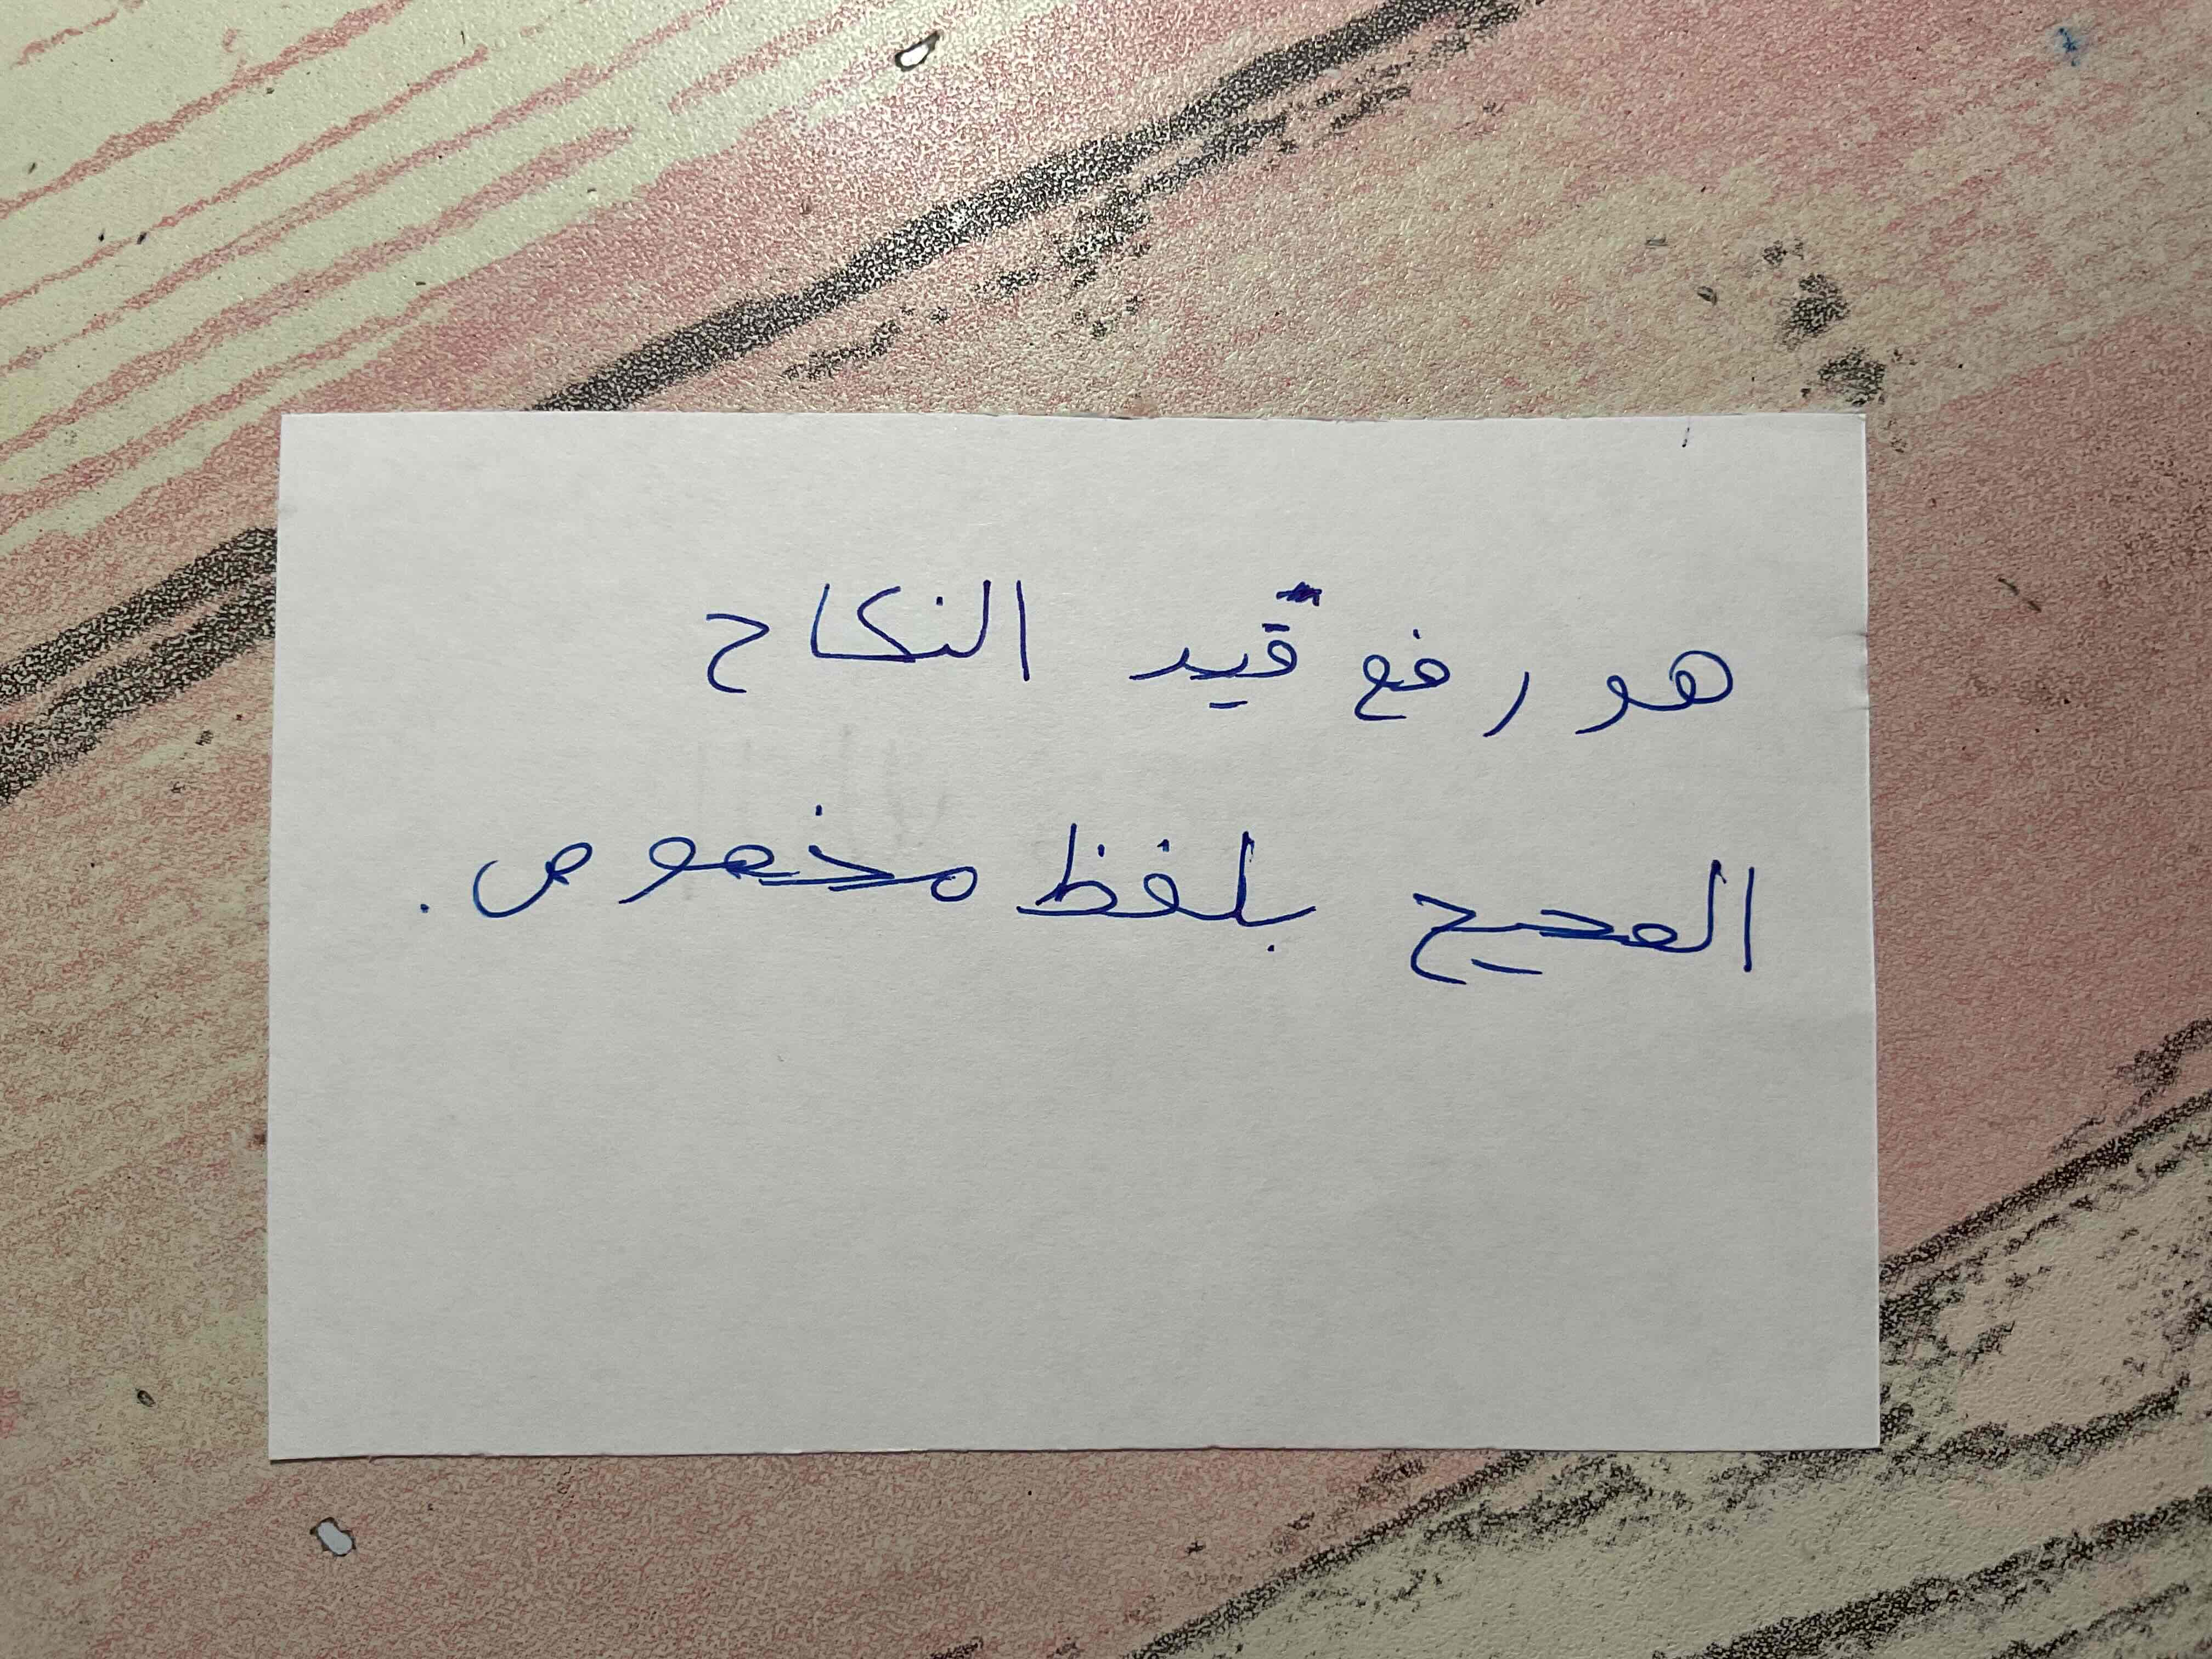 هو رفع قيد النكاح
الصحيح بلفظ مخصوص.